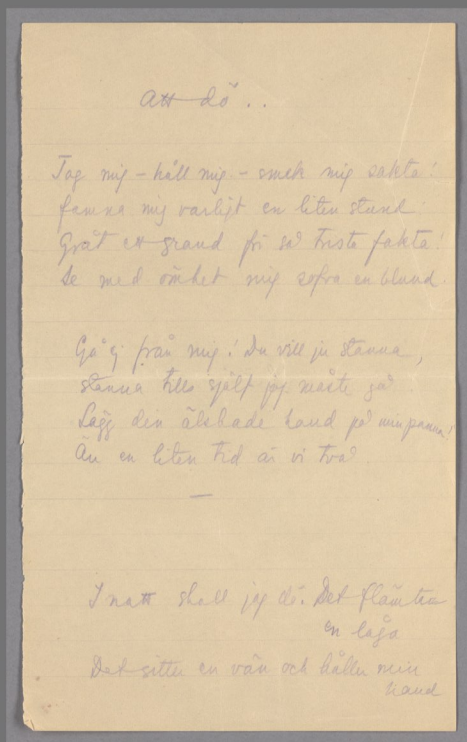 Att dö..
Tag mig – håll mig – smek mig sakta!
famna mig varligt en liten stund
Gråt ett grand för så trista fakta!
Se med ömhet mig sofva en blund.
Gå ej från mig! Du vill ju stanna,
stanna tills själf jag måste gå
Lägg din älskade hand på min panna!
Än en liten tid är vi två
—
I natt skall jag dö. Det flämtar
en låga
Det sitter en vän och håller min
hand